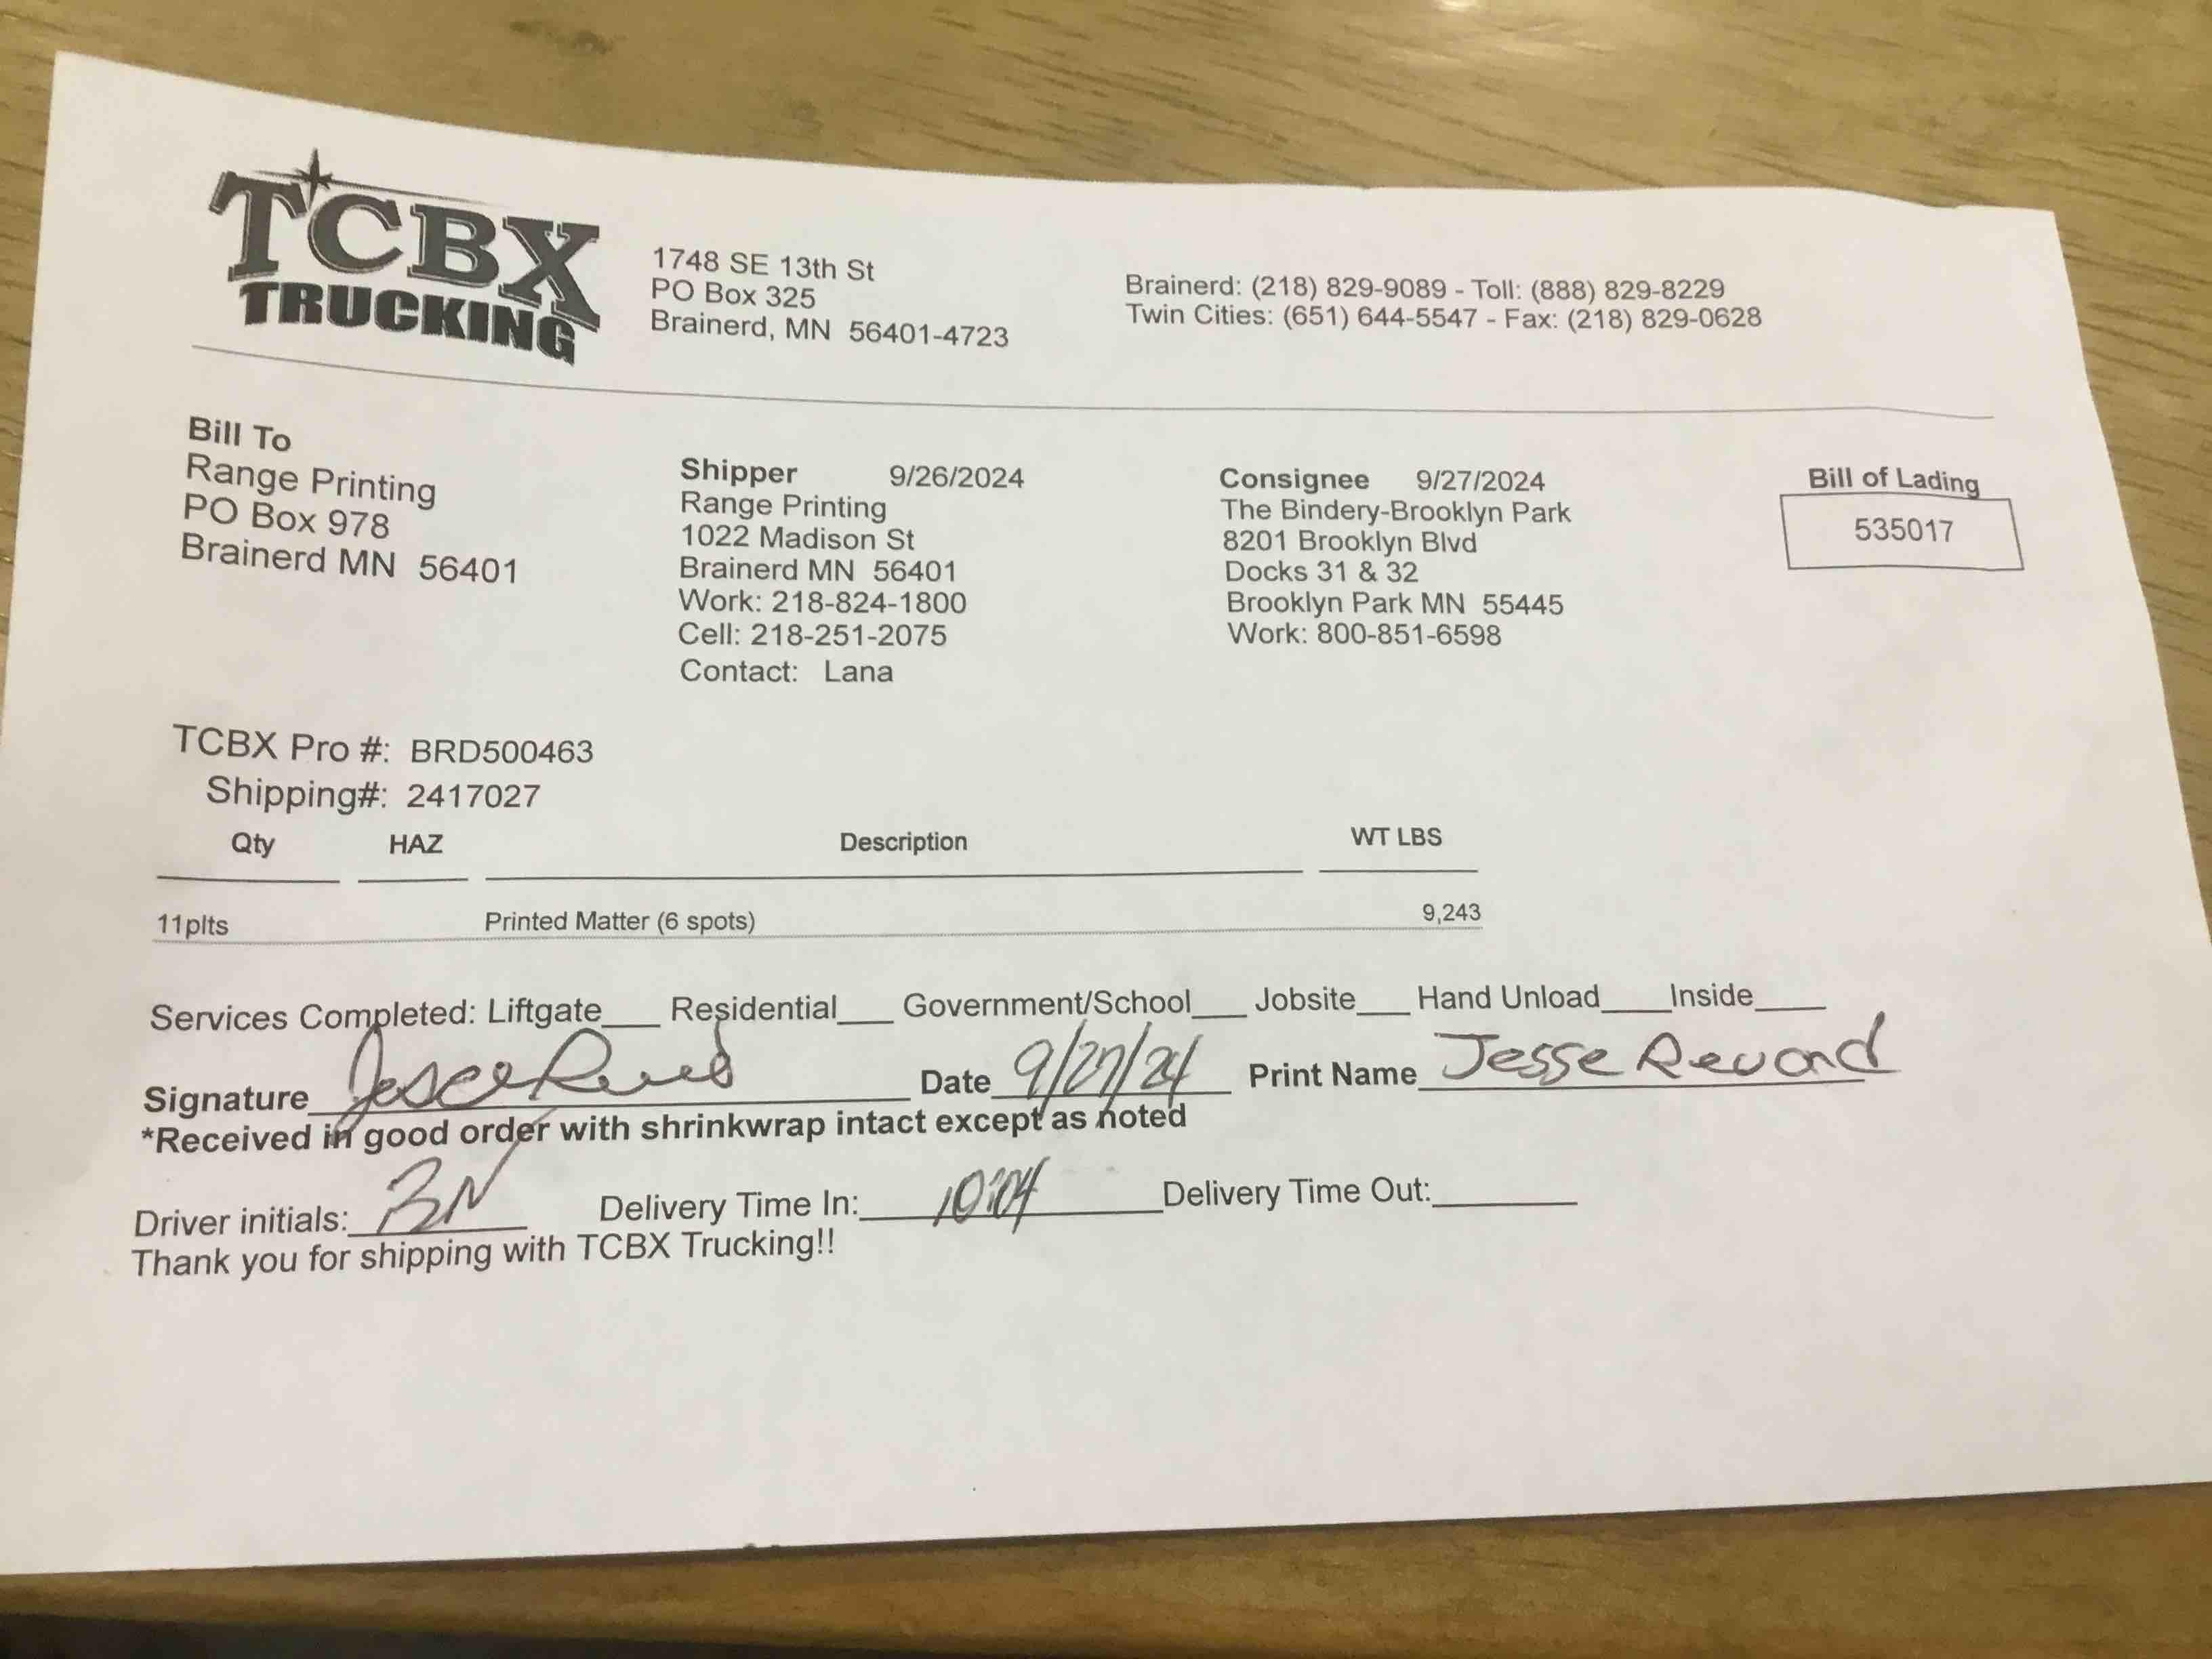 TCBX
TRUCKING
1748 SE 13th St
PO Box 325
Brainerd, MN 56401-4723
Brainerd: (218) 829-9089 - Toll: (888) 829-8229
Twin Cities: (651) 644-5547 - Fax: (218) 829-0628
Bill To
Range Printing
PO Box 978
Brainerd MN 56401
Shipper 9/26/2024
Range Printing
1022 Madison St
Brainerd MN 56401
Work: 218-824-1800
Cell: 218-251-2075
Contact: Lana
Consignee 9/27/2024
The Bindery-Brooklyn Park
8201 Brooklyn Blvd
Docks 31 & 32
Brooklyn Park MN 55445
Work: 800-851-6598
Bill of Lading
535017
TCBX Pro #: BRD500463
Shipping#: 2417027
Qty HAZ Description WT LBS
11plts Printed Matter (6 spots) 9,243
Services Completed: Liftgate___ Residential___ Government/School___ Jobsite___ Hand Unload___ Inside___
Signature Date 9/27/24 Print Name Jesse Revord
*Received in good order with shrinkwrap intact except as noted
Driver initials: BN Delivery Time In: 10:04 Delivery Time Out:
Thank you for shipping with TCBX Trucking!!